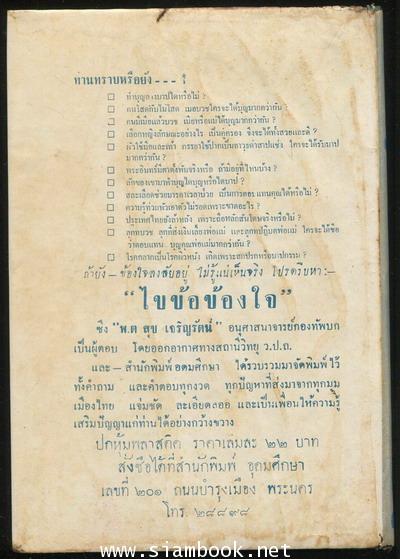 ท่านทราบหรือยัง - - - ?
□ ทำบุญ เอาบาปได้หรือไม่ ?
□ คนโสดกับไม่โสด เมื่อบวชใครจะได้บุญมากกว่ากัน ?
□ คนมีเมียแล้วบวช เมียหรือแม่ได้บุญมากกว่ากัน ?
□ เลือกหญิงลักษณะอย่างไร เป็นคู่ครอง จึงจะได้ทั้งสวยและดี ?
□ ใช้มือและเท้า ภรรยาใช้ปากเป็นอาวุธด่าสาปแช่ง ใครจะได้รับบาป
มากกว่ากัน ?
□ พระอินทร์มีตาตั้งพันจริงหรือ ถ้ามีอยู่ที่ไหนบ้าง ?
□ ลักของเขามาทำบุญได้บุญหรือได้บาป ?
□ สละเลือดช่วยมารดาเวลาป่วย เป็นการตอบแทนคุณได้หรือไม่ ?
□ ความรู้ท่วมหัวเอาตัวไม่รอดเพราะขาดอะไร ?
□ ประเทศไทยยังล้าหลัง เพราะถือหลักสันโดษจริงหรือไม่ ?
□ ลูกที่บวช ลูกที่ส่งเงินเลี้ยงพ่อแม่ และลูกที่ปฏิบัติพ่อแม่ ใครจะได้ชื่อ
ว่าตอบแทน บุญคุณพ่อแม่มากกว่ากัน ?
□ โรคกลากเป็นโรคผิวหนัง เกิดเพราะสกปรกหรือบาปกรรม ?
ถ้ายัง – ข้องใจสงสัยอยู่ ไม่รู้แน่เห็นจริง โปรดรีบหา :–
“ไขข้อข้องใจ”
ซึ่ง “พ.ต สุข เจริญรัตน์” อนุศาสนาจารย์กองทัพบก
เป็นผู้ตอบ โดยออกอากาศทางสถานีวิทยุ ว.ป.ถ.
และ – สำนักพิมพ์ อุดมศึกษา ได้รวบรวมมาจัดพิมพ์ไว้
ทั้งคำถาม และคำตอบทุกงวด ทุกปัญหาที่ส่งมาจากทุกมุม
เมืองไทย แจ่มชัด ละเอียดลออ และเป็นเพื่อนให้ความรู้
เสริมปัญญาแก่ท่านได้อย่างกว้างขวาง
ปกหุ้มพลาสติค ราคาเล่มละ ๒๒ บาท
สั่งซื้อได้ที่สำนักพิมพ์ อุดมศึกษา
เลขที่ ๒๐๑ ถนนบำรุงเมือง พระนคร
โทร. ๒๘๘๙๘
www.siambook.net